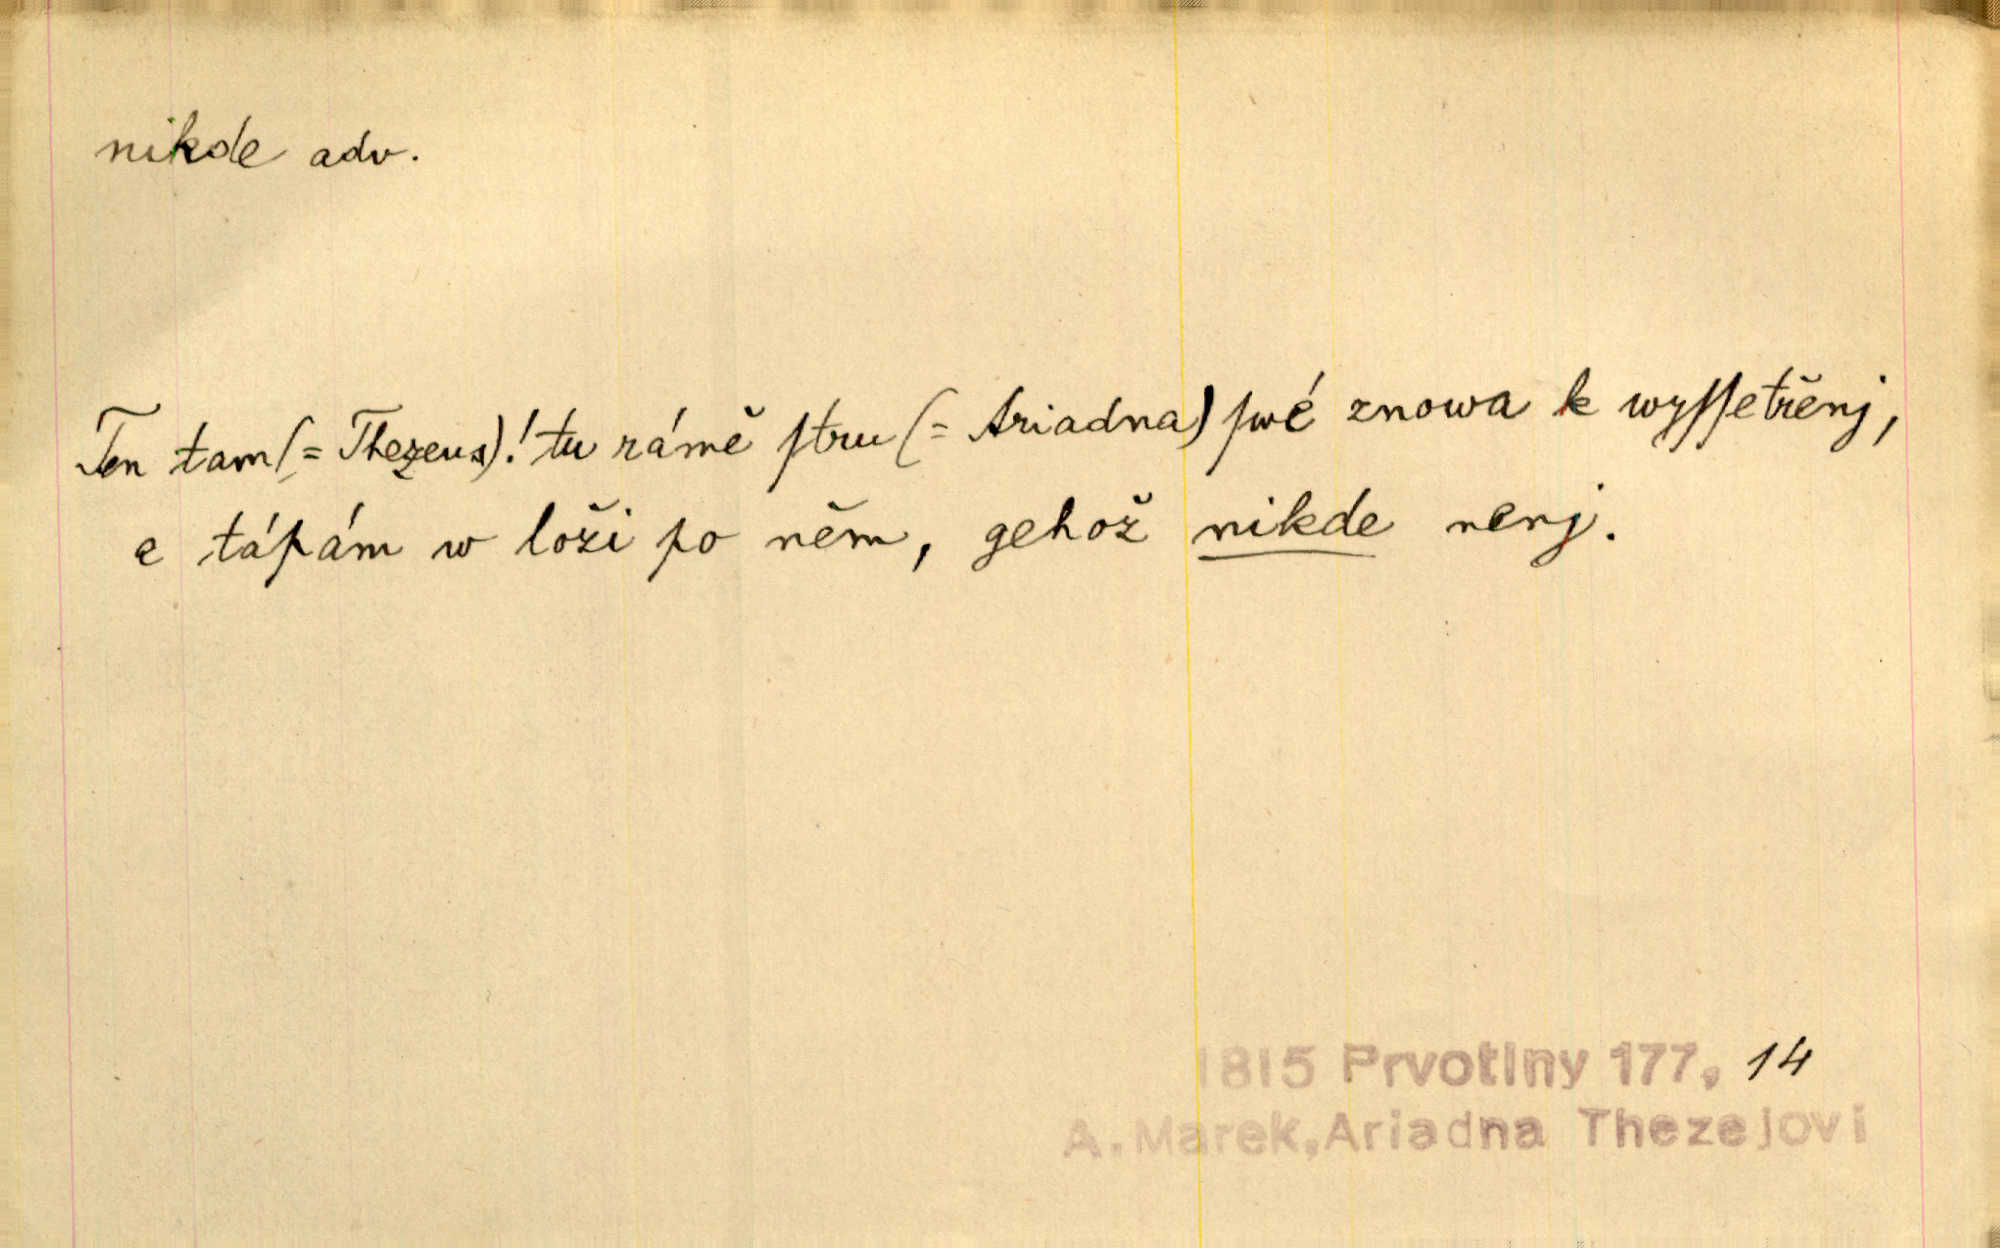 nikde adv.
Ten tam (= Thezeus)! tu rámě ſtru (= Ariadna) ſwé znowa k wyſſetřenj,
a tápám w loži po něm, gehož nikde nenj.
1815 Prvotiny 177, 14
A. Marek, Ariadna Thezejovi